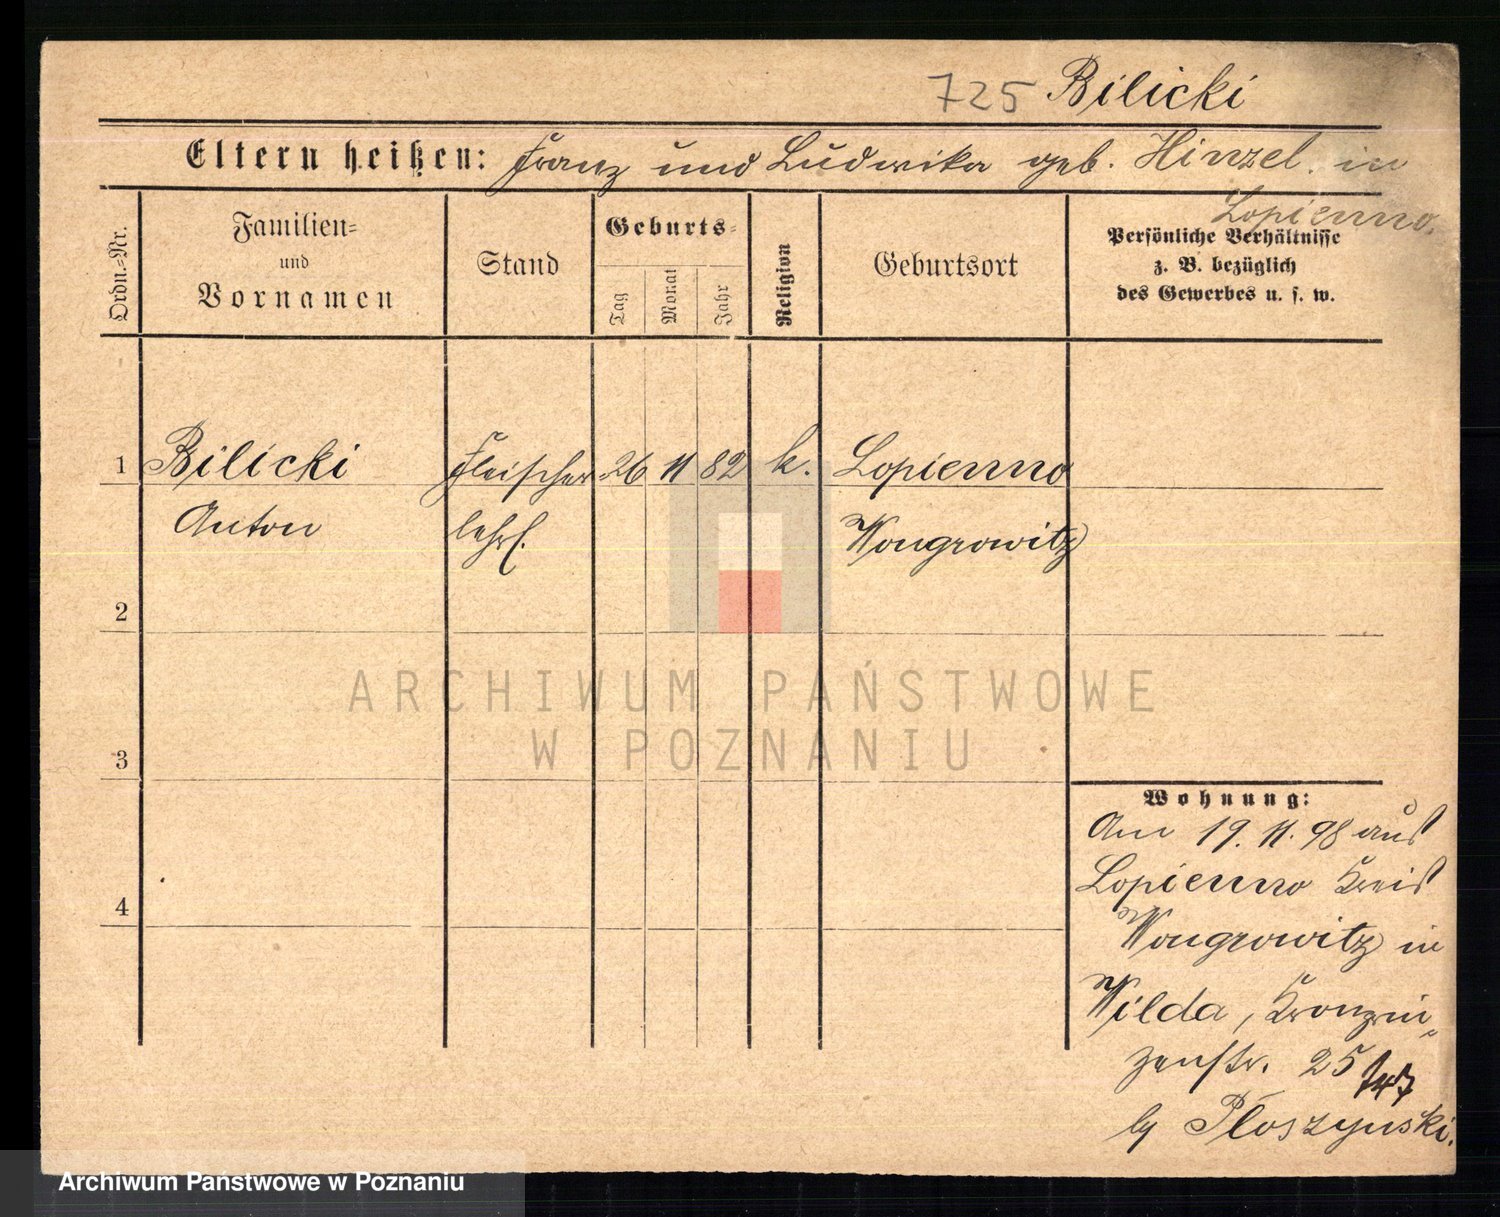 725 Bilicki
Eltern heißen: Franz und Ludwika geb. Hinzel in
Lopienno.
Ordn.-Nr.
Familien-
und
Vornamen
Stand
Geburts-
Tag
Monat
Jahr
Religion
Geburtsort
Persönliche Verhältnisse
z. B. bezüglich
des Gewerbes u. s. w.
1 Bilicki Fleischer 26 11 82 k. Lopienno
Anton lehrl. Wongrowitz
2
3
4
Wohnung:
Am 19. 11. 98 aus
Lopienno Kreis
Wongrowitz in
Wilda, Kronprin-
zenstr. 25
by Ploszynski.
ARCHIWUM PAŃSTWOWE
W POZNANIU
Archiwum Państwowe w Poznaniu